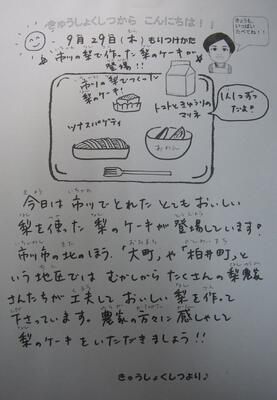 きゅうしょくしつから こんにちは！！
きょうも、
いっぱい
たべてね！！
9月29日(木) もりつけかた
市川の梨で作った梨のケーキが
登場！！
市川の梨でつくった
梨のケーキ！
トマトときゅうりの
マリネ
1人1つずつ
だよ♪
ツナスパゲティ
おかん
今日は市川でとれた とてもおいしい
梨を使った 梨のケーキが登場しています！
市川市の北のほう、「大町」や「柏井町」と
いう地区では むかしからたくさんの梨農家
さんたちが工夫して おいしい梨を作って
下さっています。農家の方々に感しゃして
梨のケーキをいただきましょう！！
きゅうしょくしつより♪